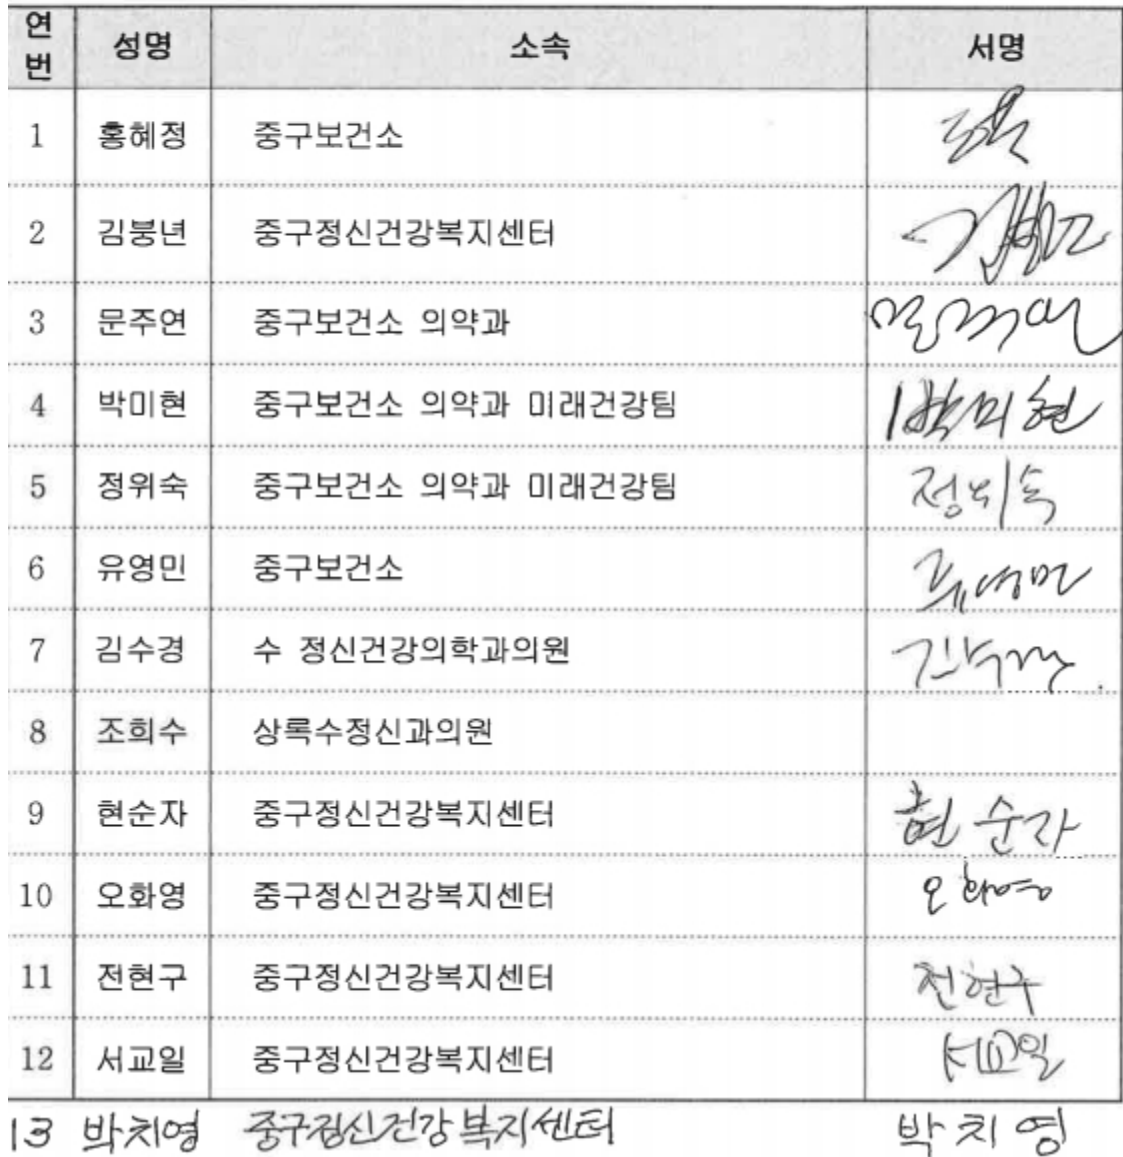 연번 성명 소속 서명
1 홍혜정 중구보건소
2 김붕년 중구정신건강복지센터
3 문주연 중구보건소 의약과 문주연
4 박미현 중구보건소 의약과 미래건강팀 박미현
5 정위숙 중구보건소 의약과 미래건강팀 정위숙
6 유영민 중구보건소 유영민
7 김수경 수 정신건강의학과의원 김수경
8 조희수 상록수정신과의원
9 현순자 중구정신건강복지센터 현순자
10 오화영 중구정신건강복지센터 오화영
11 전현구 중구정신건강복지센터 전현구
12 서교일 중구정신건강복지센터 서교일
13 박치영 중구정신건강복지센터 박치영